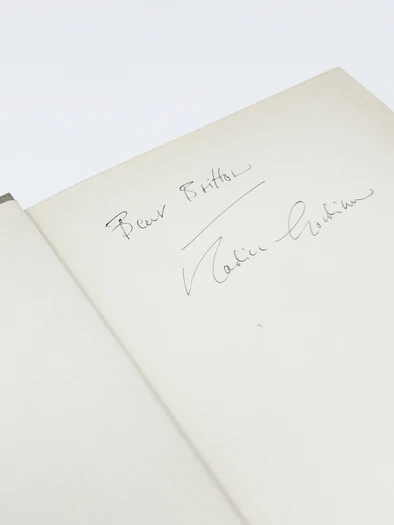 Burt Britton
Nadine Gordimer